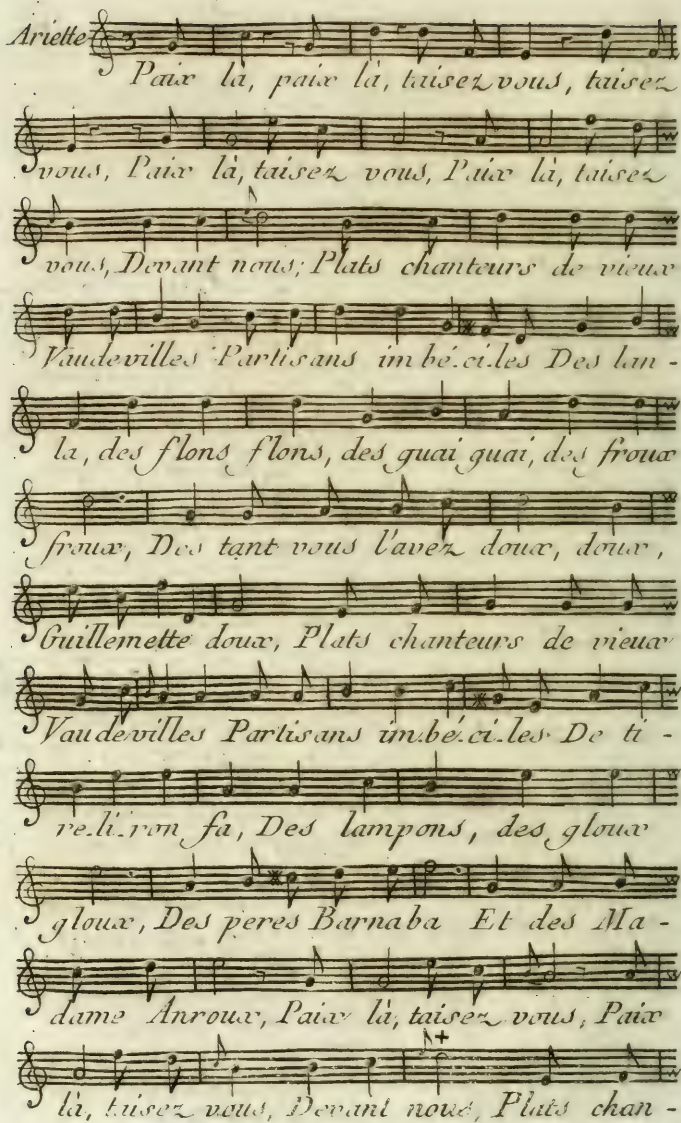 Ariette 3
Paix là, paix là, taisez vous, taisez
vous, Paix là, taisez vous, Paix là, taisez
vous, Devant nous; Plats chanteurs de vieux
Vaudevilles Partisans im bé.ci.les Des lan-
la, des flons flons, des guai guai, des froux
froux, Des tant vous l'avez doux, doux,
Guillemette doux, Plats chanteurs de vieux
Vaudevilles Partisans im.bé.ci.les De ti-
re.li.ron fa, Des lampons, des gloux
gloux, Des peres Barnaba Et des Ma-
dame Anroux, Paix là, taisez vous, Paix
là, taisez vous, Devant nous, Plats chan-